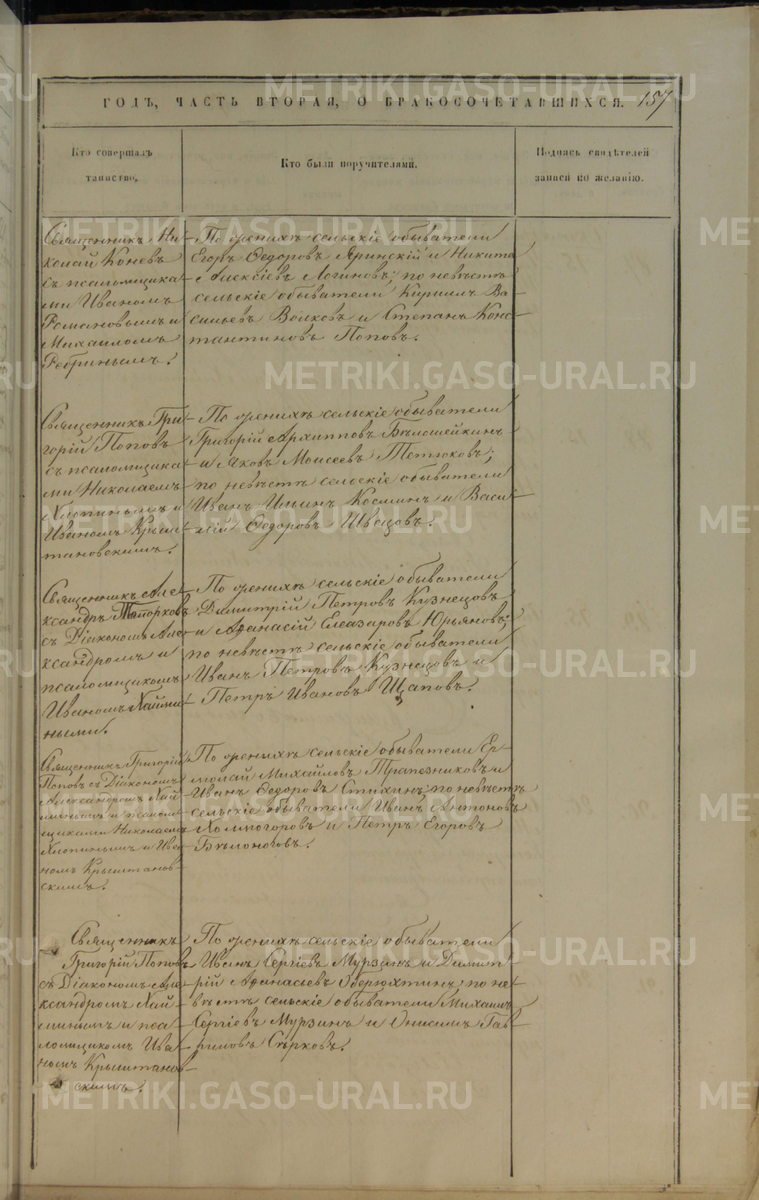 ГОДЪ, ЧАСТЬ ВТОРАЯ, О БРАКОСОЧЕТАВШИХСЯ. 157
Кто совершалъ
таинство.
Кто были поручителями.
Подпись свидѣтелей
записи по желанію.
Священникъ Ни-
колай Коневъ
съ псаломщика-
ми Иваномъ
Романовымъ и
Михаиломъ
Ребринымъ.
По женихѣ сельскіе обыватели
Егоръ Ѳедоровъ Яринскій и Никита
Алексіевъ Логиновъ; по невѣстѣ
сельскіе обыватели Кириллъ Ва-
сильевъ Волковъ и Степанъ Конс-
тантиновъ Поповъ.
Священникъ Гри-
горій Поповъ
съ псаломщика-
ми Николаемъ
Хлопинымъ и
Иваномъ Крыш-
тановскимъ.
По женихѣ сельскіе обыватели
Григорій Архипповъ Бѣлошейкинъ
и Яковъ Моисеевъ Тетюковъ;
по невѣстѣ сельскіе обыватели
Иванъ Ильинъ Косминъ и Васи-
лій Ѳедоровъ Швецовъ.
Священникъ Але-
ксандръ Топорковъ
съ Діакономъ Але-
ксандромъ и
псаломщикомъ
Иваномъ Хайми-
ными.
По женихѣ сельскіе обыватели
Димитрій Петровъ Кузнецовъ
и Аѳанасій Елеазаровъ Юрьяновъ;
по невѣстѣ сельскіе обыватели
Иванъ Петровъ Кузнецовъ и
Петръ Ивановъ Щаповъ.
Священникъ Григорій
Поповъ съ Діакономъ
Александромъ Хай-
минымъ и псалом-
щиками Николаемъ
Хлопинымъ и Ива-
номъ Крыштанов-
скимъ.
По женихѣ сельскіе обыватели Ер-
молай Михайловъ Трапезниковъ и
Иванъ Ѳедоровъ Стихинъ; по невѣстѣ
сельскіе обыватели Иванъ Антоновъ
Холмогоровъ и Петръ Егоровъ
Бѣлоноговъ.
Священникъ
Григорій Поповъ
съ Діакономъ Але-
ксандромъ Хай-
минымъ и пса-
ломщикомъ Ива-
номъ Крыштанов-
скимъ.
По женихѣ сельскіе обыватели
Иванъ Сергіевъ Мурзинъ и Димит-
рій Аѳанасьевъ Оберюхтинъ; по не-
вѣстѣ сельскіе обыватели Михаилъ
Сергіевъ Мурзинъ и Онисимъ Гав-
риловъ Сѣрковъ.
METRIKI.GASO-URAL.RU